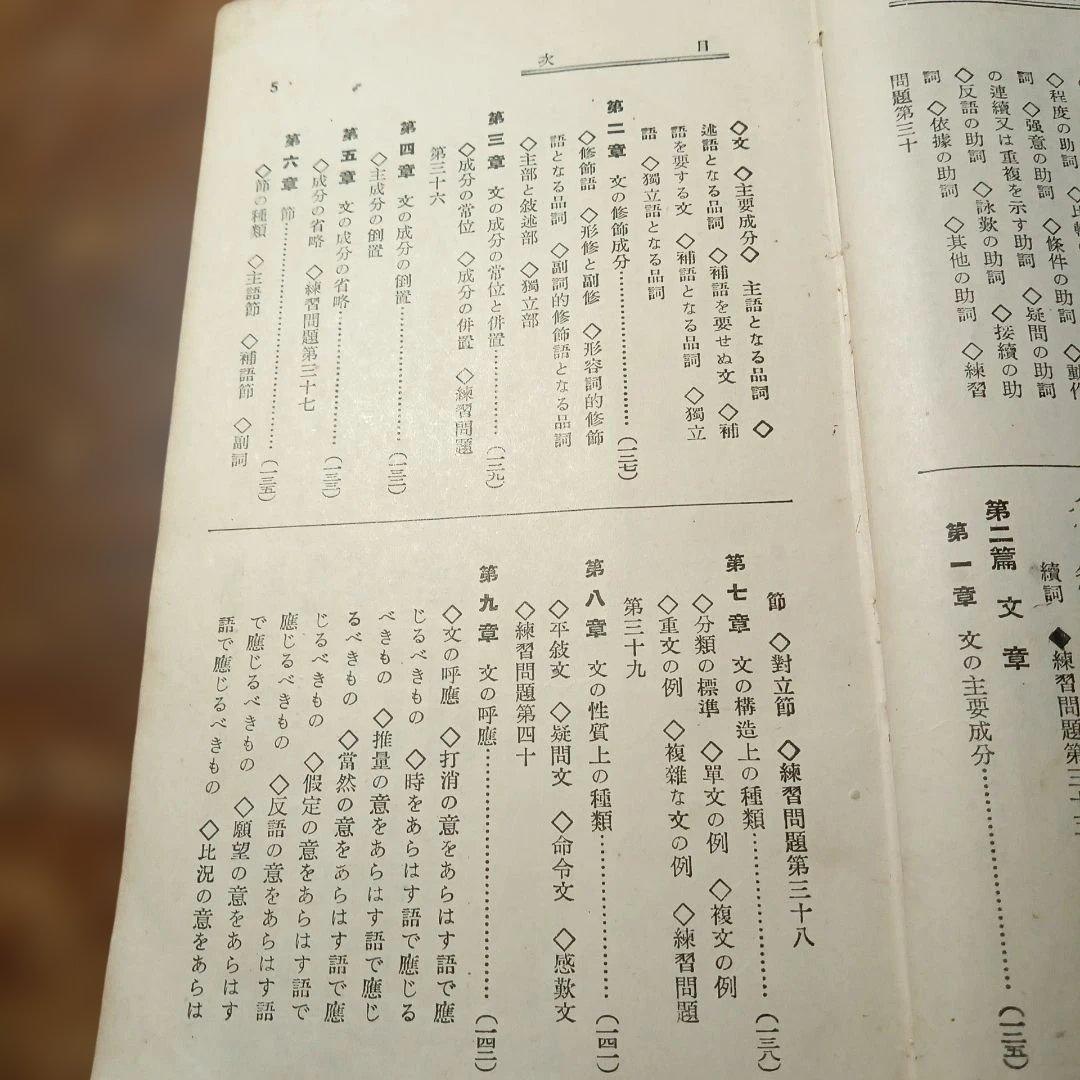 ◇程度の助詞
詞 ◇强意の助詞 ◇條件の助詞 ◇動作
の連續又は重複を示す助詞 ◇疑問の助詞
◇反語の助詞 ◇詠歎の助詞 ◇接續の助
詞 ◇依據の助詞 ◇其他の助詞 ◇練習
問題第三十
續詞 ◆練習問題第三十三
第二篇 文章
第一章 文の主要成分……………(一二五)
目次
◇文 ◇主要成分◇ 主語となる品詞 ◇
述語となる品詞 ◇補語を要せぬ文 ◇補
語を要する文 ◇補語となる品詞 ◇獨立
語 ◇獨立語となる品詞
第二章 文の修飾成分……………(一二七)
◇修飾語 ◇形修と副修 ◇形容詞的修飾
語となる品詞 ◇副詞的修飾語となる品詞
◇主部と敍述部 ◇獨立部
第三章 文の成分の常位と併置……………(一二九)
◇成分の常位 ◇成分の併置 ◇練習問題
第三十六
第四章 文の成分の倒置……………(一三二)
◇主成分の倒置
第五章 文の成分の省略……………(一三三)
◇成分の省略 ◇練習問題第三十七
第六章 節……………(一三五)
◇節の種類 ◇主語節 ◇補語節 ◇副詞
5
節 ◇對立節 ◇練習問題第三十八
第七章 文の構造上の種類……………(一三八)
◇分類の標準 ◇單文の例 ◇複文の例
◇重文の例 ◇複雜な文の例 ◇練習問題
第三十九
第八章 文の性質上の種類……………(一四一)
◇平敍文 ◇疑問文 ◇命令文 ◇感歎文
◇練習問題第四十
第九章 文の呼應……………(一四二)
◇文の呼應 ◇打消の意をあらはす語で應
じるべきもの ◇時をあらはす語で應じる
べきもの ◇推量の意をあらはす語で應じ
るべきもの ◇當然の意をあらはす語で應
じるべきもの ◇假定の意をあらはす語で
應じるべきもの ◇反語の意をあらはす語
で應じるべきもの ◇願望の意をあらはす
語で應じるべきもの ◇比況の意をあらは